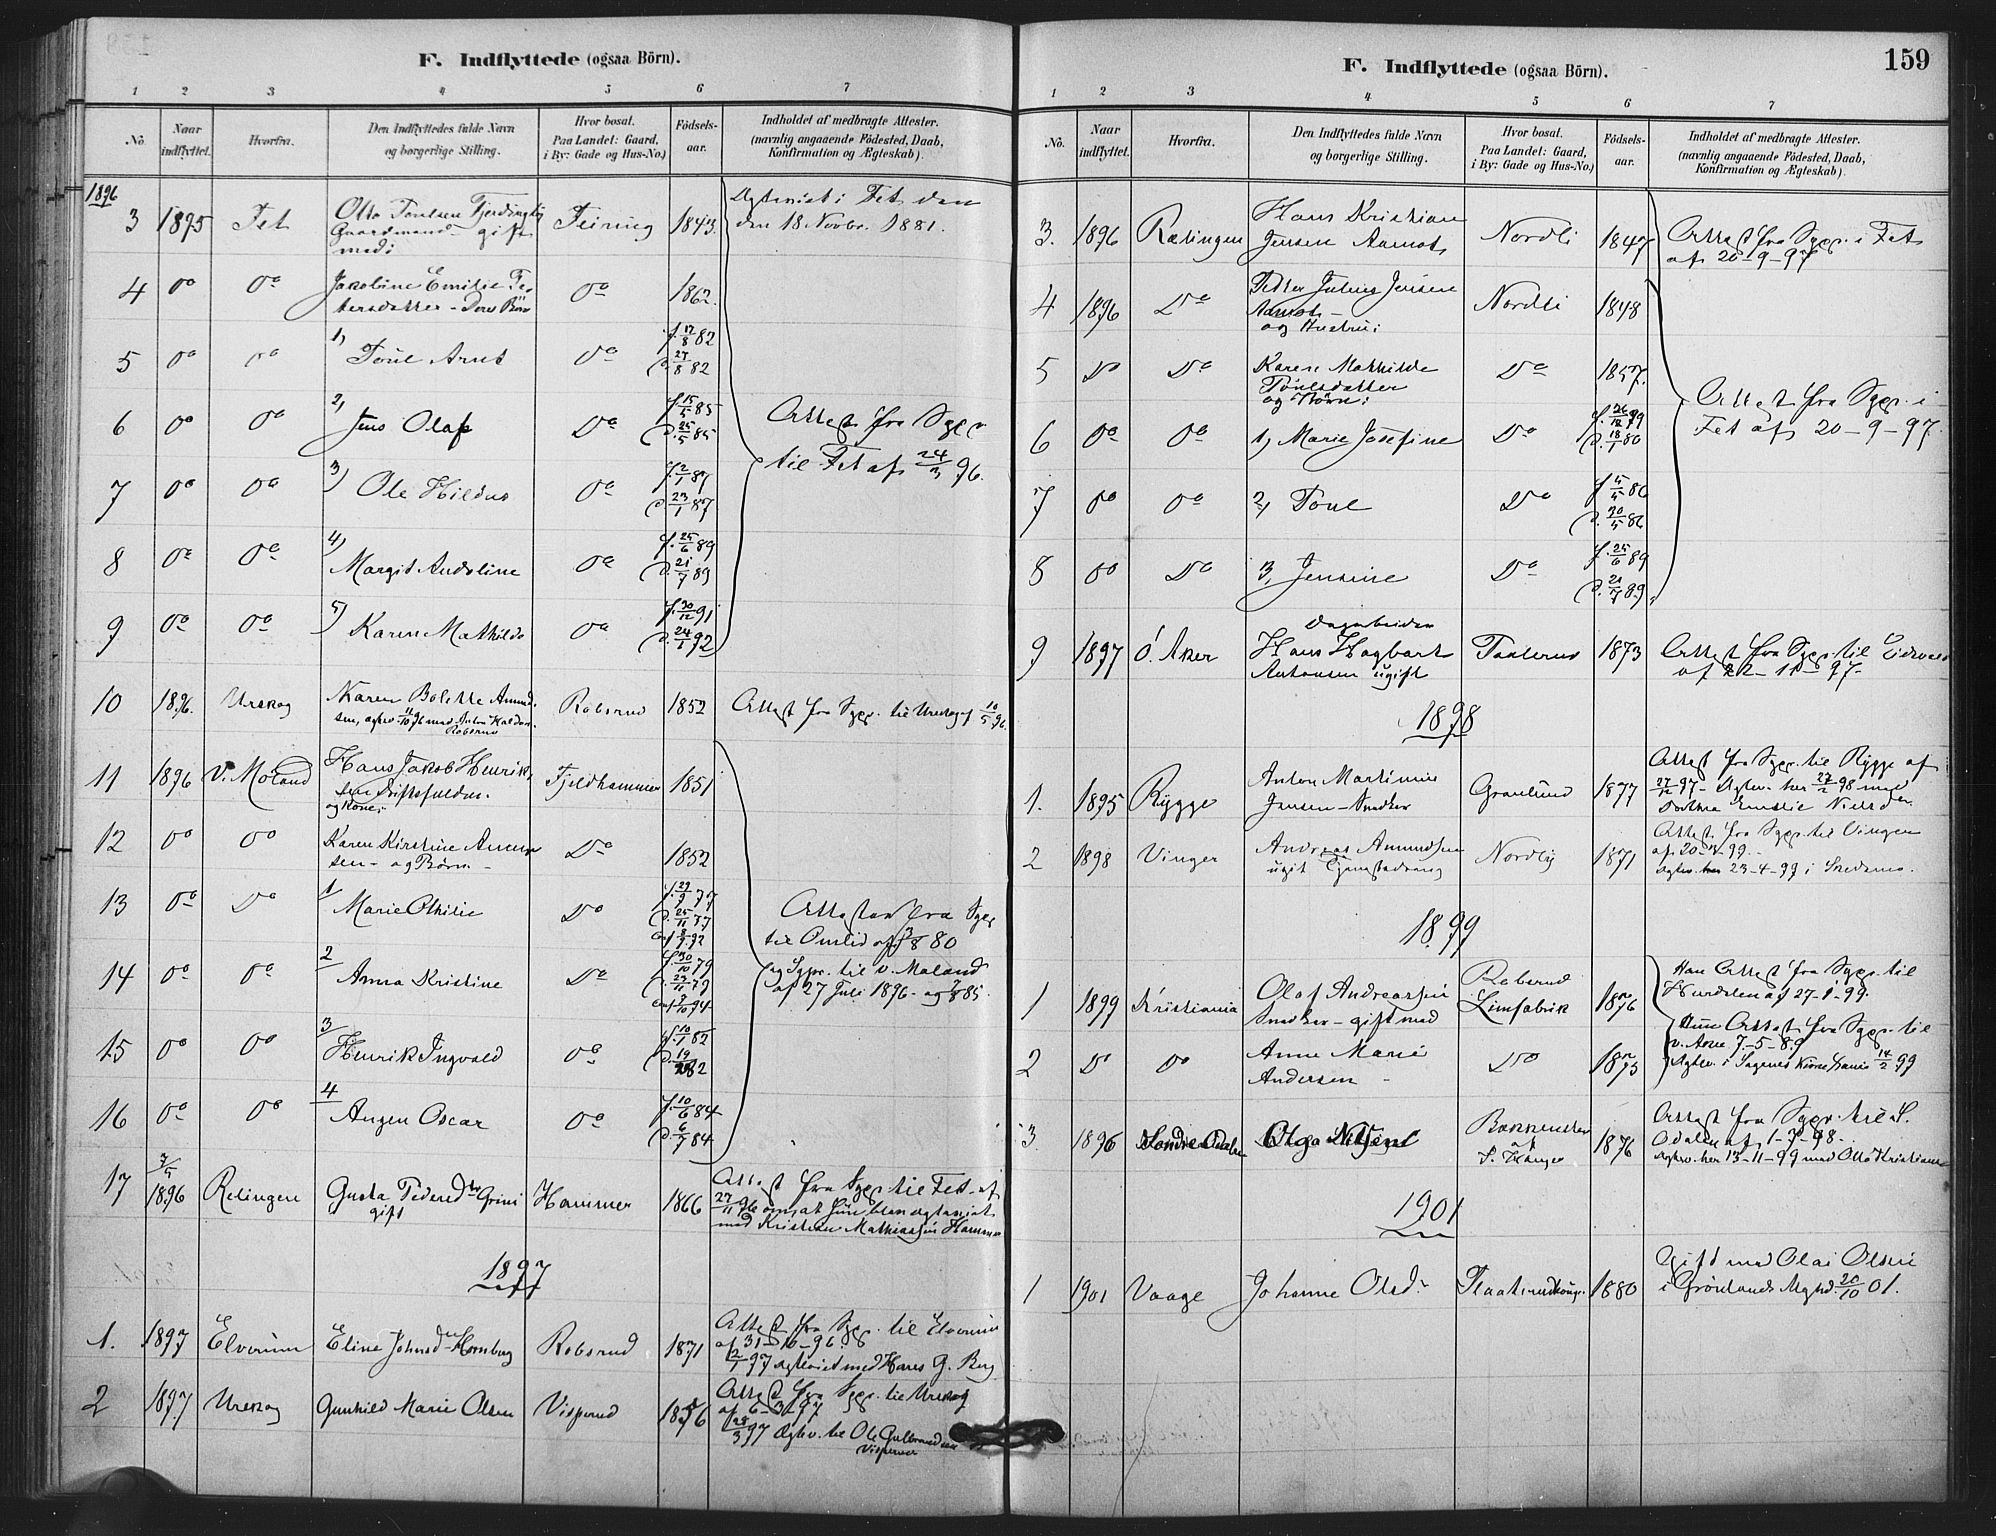 F. Indflyttede (ogsaa Börn).
1 2 3 4 5 6 7
No.
Naar indflyttet.
Hvorfra.
Den Indflyttedes fulde Navn og borgerlige Stilling.
Hvor bosat. Paa Landet: Gaard, i By: Gade og Hus-No.)
Födsels-aar.
Indholdet af medbragte Attester. (navnlig angaaende Födested, Daab, Konfirmation og Ægteskab).
1896
3 1895 Fet Otto Poulsen Gaardmand gift med: 1843
den 18 Novbr. 1881.
4 Do Do Jakobine Emilie Pe-
tersdatter - Deres Børn Do 1862.
5 Do Do 1) Poul Arnt Do f. 17/8 82
d. 27/8 82
6 Do Do 2) Jens Olaf Do f. 15/4 85
d. 25/5 85
Attest fra Sgpr
til Fet af 24/3 96.
7 Do Do 3) Ole Hildus Do f. 2/1 87
d. 23/1 87
8 Do Do 4) Margit Andoline Do f. 25/6 89
d. 21/7 89
9 Do Do 5) Karen Mathilde Do f. 30/12 91
d. 24/1 92
10 1896. Urskog Karen Bolette Amund-
sen, Robsrud 1852 Attest fra Sgpr. til Urskog af 10/5 96.
11 1896 V. Moland Hans Jakob Henrik-
sen og Kone: Fjeldhammer 1851
12 Do Do Karen Kirstine
sen - og Børn - Do 1852
13 Do Do 1/ Marie Othilie Do f. 29/9 77
d. 25/11 77
Attester fra Sgpr
til Omlid af 3/8 80
14 Do Do 2/ Anna Kristine Do f. 30/10 79
og Sgpr. til v. Moland
af 27 Juli 1896 - og 85.
15 Do Do 3/ Henrik Ingvald Do f. 10/1 82
16 Do Do 4/ Augen Oscar Do f. 10/6 84
d. 6/7 84
17 1896 Relingen Gusta Pedersdtr Grini
gift Hammer 1866 Attest fra Sgpr. til Fet af
27/11 96 om at hun blev ægteviet
med Kristian Mathiassen Hammer
1897
1. 1897 Elverum Eline Johnsdtr Hornberg Robsrud 1871 Attest fra Sgpr. til Elverum
af 31-10-96.
97 ægteviet med Hans G. Berg
2 1897 Urskog Gunhild Marie Olsen Visperud Attest fra Sgpr. til Urskog
af 6-3-97
28/3 97 Ægtev. til Ole Gulbrandsen
F. Indflyttede (ogsaa Börn). 159
1 2 3 4 5 6 7
No.
Naar indflyttet.
Hvorfra.
Den Indflyttedes fulde Navn og borgerlige Stilling.
Hvor bosat. Paa Landet: Gaard, i By: Gade og Hus-No.)
Födsels-aar.
Indholdet af medbragte Attester. (navnlig angaaende Födested, Daab, Konfirmation og Ægteskab).
3. 1896 Rælingen Hans Kristian
Jensen Aamot Nordli 1847 Attest fra Sgpr. i Fet
af 20-9-97
4 1896 Do Petter Julius Jensen
Aamot -
og Hustru: Nordli 1848
5 Do Do Karen Mathilde
Poulsdatter
og Børn: Do 1857.
Attest fra Sgpr. i
Fet af 20-9-97.
6 Do Do 1) Marie Josefine Do f. 26/12 79
d. 18/1 80
7 Do Do 2) Poul Do
d. 30/5 86
8 Do Do 3) Jensine Do f. 25/6 89
d. 21/7 89
9 1897 Ö. Aker Dagarbeider
Hans Hagbart
Antonsen ugift 1873 Attest fra Sgpr. til Eidsvold
1898
1. 1895 Rygge Anton Martinius
Jensen - Snedker Granlund 1877 Attest fra Sgpr. til Rygge af
27/12 97 - Ægtev. her 27/2 98 med
Emilie
2 1898 Vinger Andreas Amundsen
Nordby 1871 Attest fra Sgpr. til Vinger
Ægtev. her 23-4-99 i Skedsmo.
1899
1 1899 Kristiania Olaf Andreassen
Snedker - gift med Robsrud
Limfabrik 1876 Han Attest fra Sgpr. til
Hurdalen af 27-1-99.
Hun Attest fra Sgpr. til
7-5-89
2 Do Do Anne Marie
Andersen - Do 1875 Ægtev. i Sagenes Kirke 14/2 99
3 1896 Søndre Odalen Olga Nilsen 1876 Attest fra Sgpr. til S.
Odalen af 1-3-98.
Ægtev. her 13-11-99 med Otto Kristiansen
1901
1 1901 Vaage Johanne Olsd. 1880 Gift med Olai Olsen
i Grönlands 20/10 01.